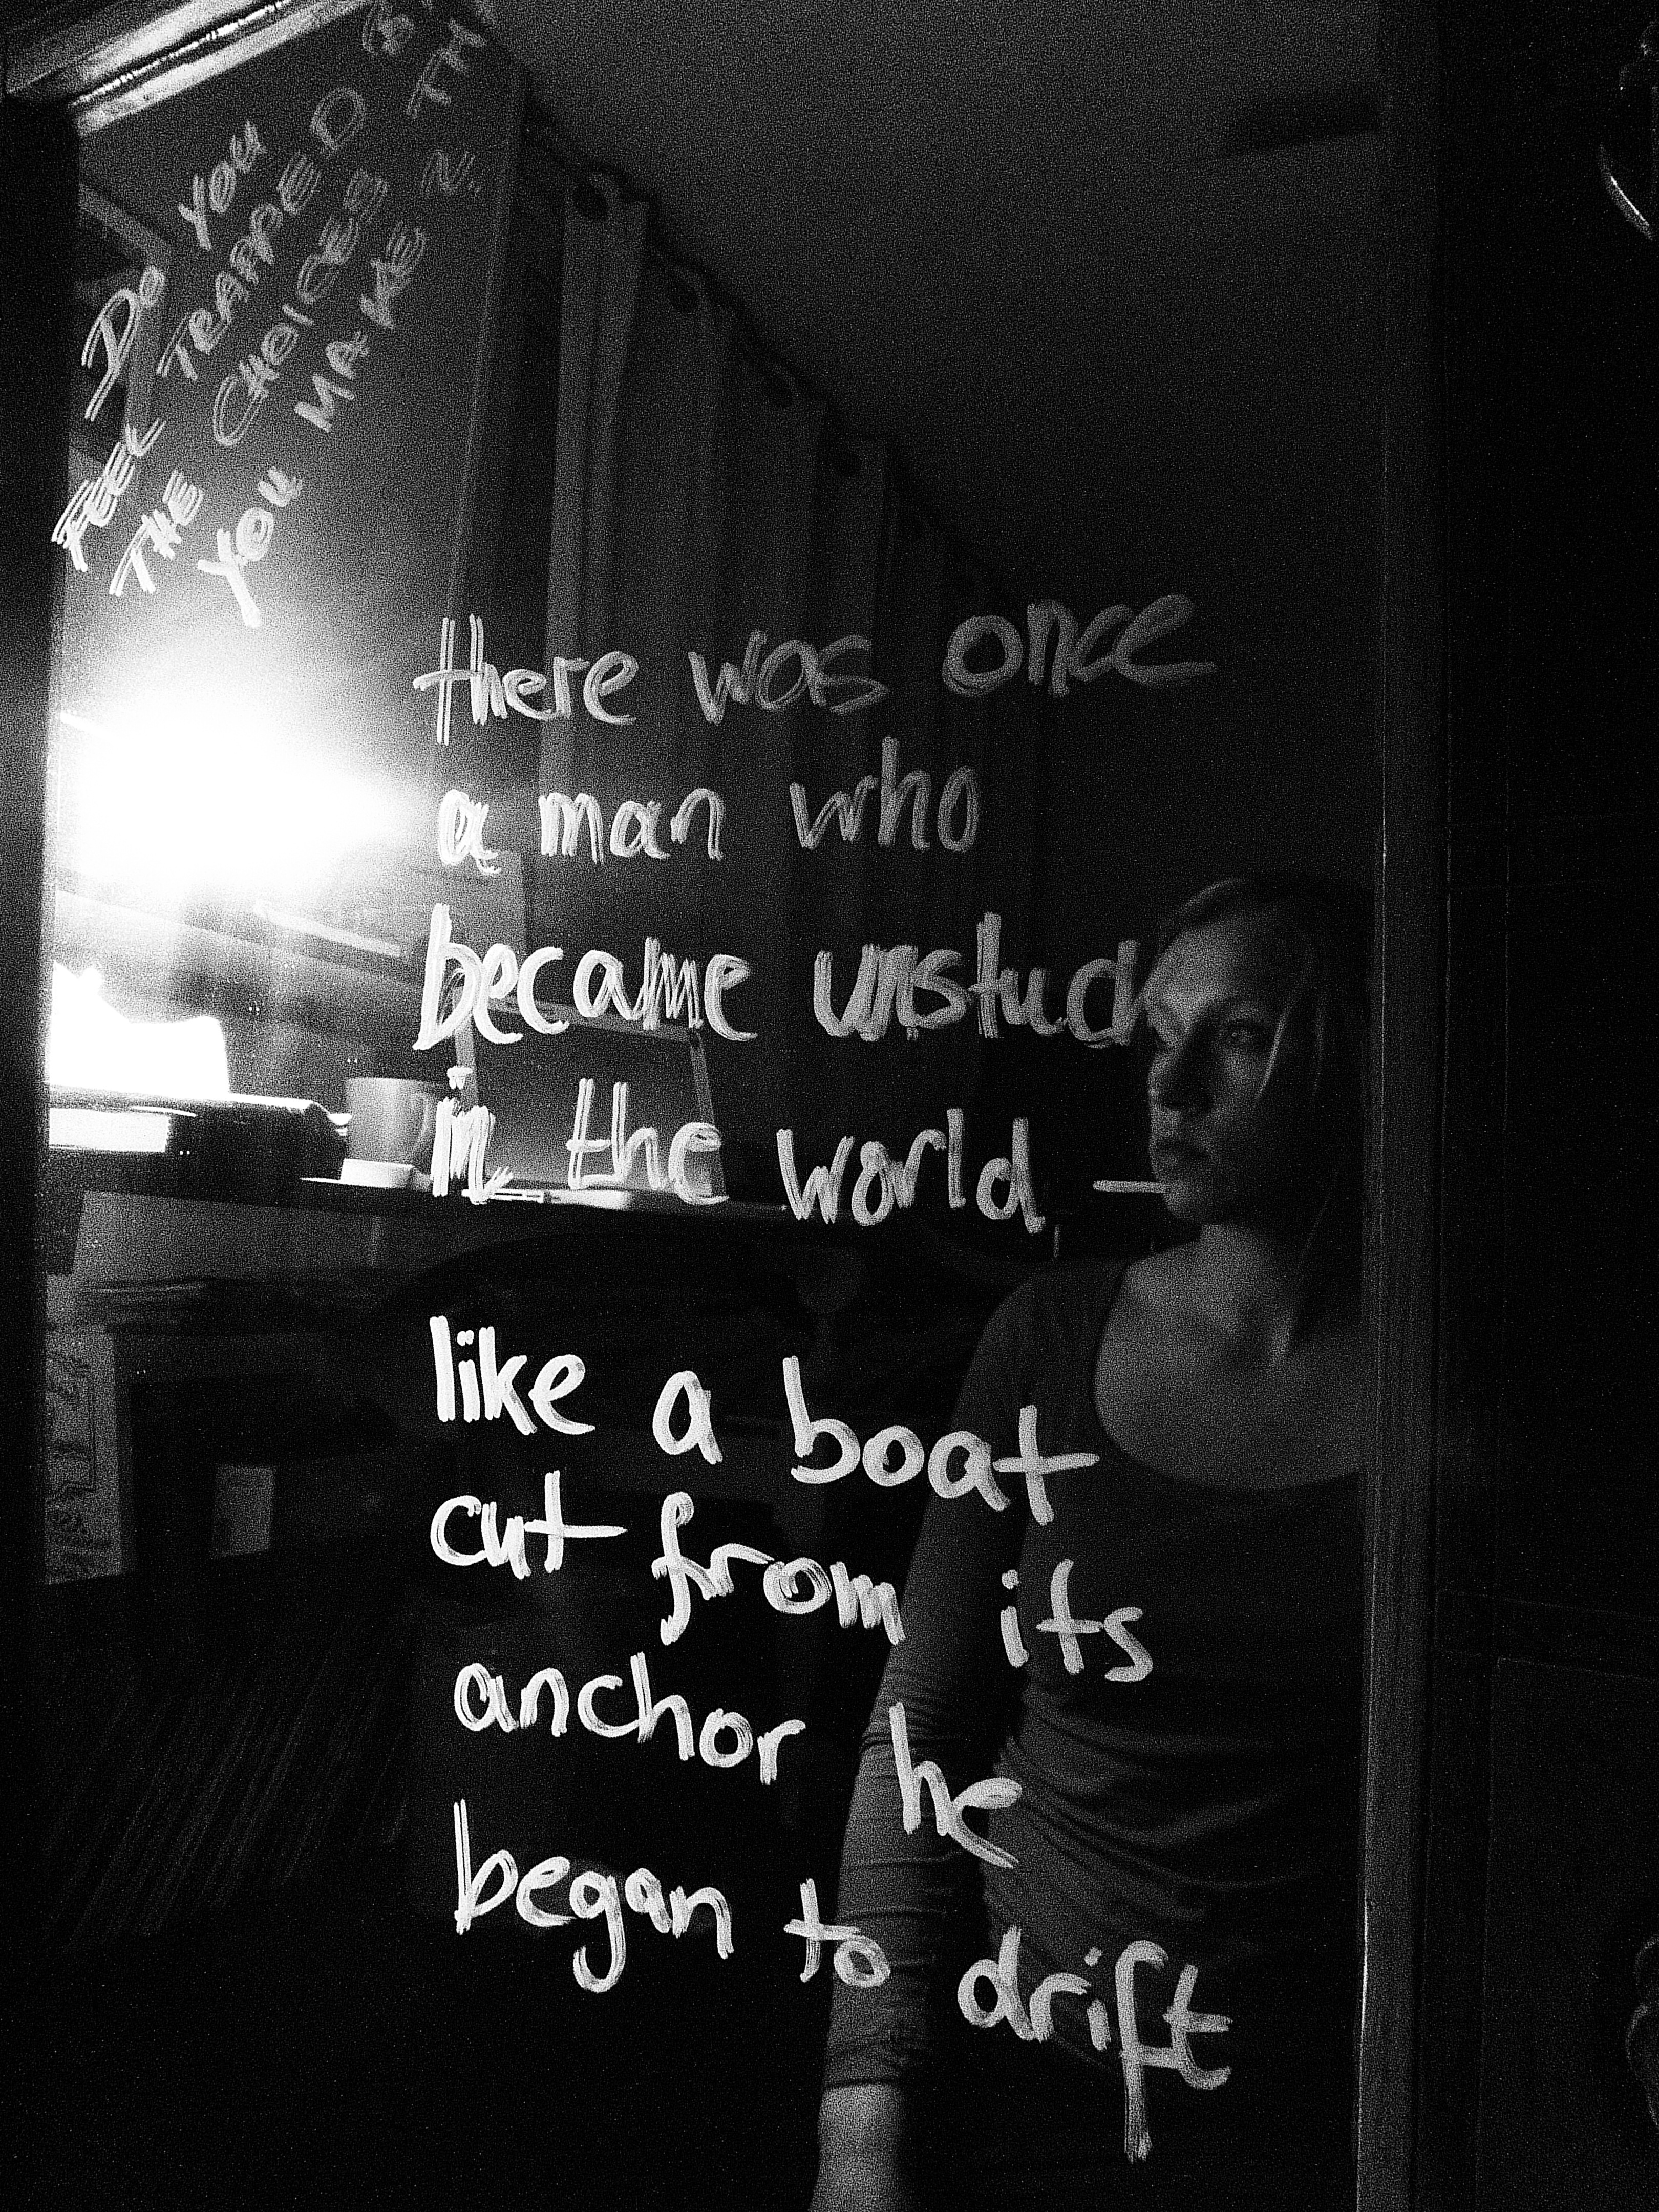 DO YOU
FEEL TRAPPED BY
THE CHOICES
YOU MAKE
there was once
a man who
became unstuck
in the world —
like a boat
cut from its
anchor he
began to drift